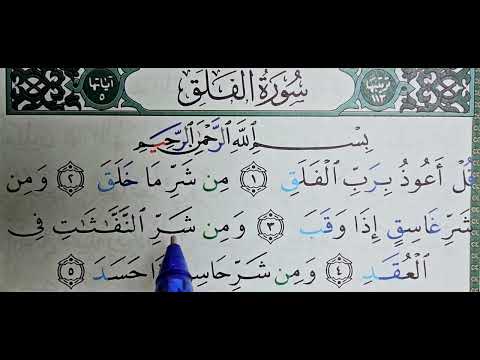 ترتيبها ١١٣
سُورَةُ الْفَلَقِ
آياتها ٥
بِسْمِ ٱللَّهِ ٱلرَّحْمَٰنِ ٱلرَّحِيمِ
قُلْ أَعُوذُ بِرَبِّ ٱلْفَلَقِ ١ مِن شَرِّ مَا خَلَقَ ٢ وَمِن
شَرِّ غَاسِقٍ إِذَا وَقَبَ ٣ وَمِن شَرِّ ٱلنَّفَّٰثَٰتِ فِى
ٱلْعُقَدِ ٤ وَمِن شَرِّ حَاسِدٍ حَسَدَ ٥